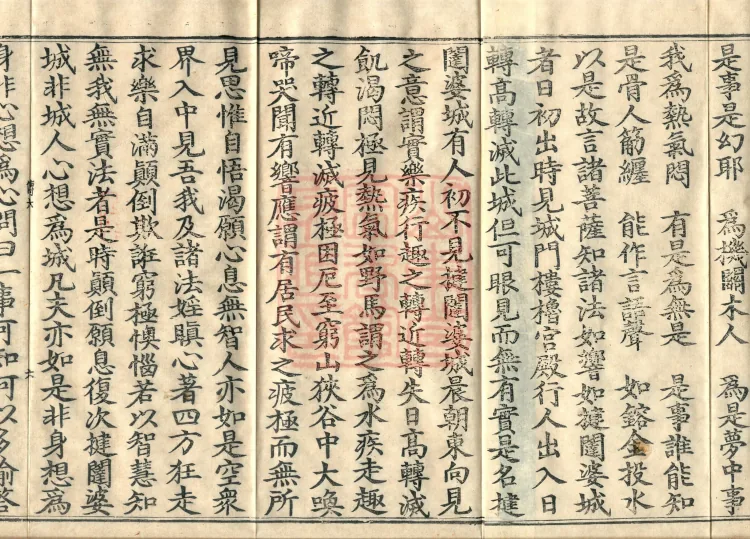 是事是幻耶　為機關木人　為是夢中事
我為熱氣悶　有是為無是　是事誰能知
是骨人筋纏　能作言語聲　如鎔金投水
以是故言諸菩薩知諸法如響如揵闥婆城
者日初出時見城門樓櫓宮殿行人出入日
轉高轉滅此城但可眼見而無有實是名揵
闥婆城有人初不見揵闥婆城晨朝東向見
之意謂實樂疾行趣之轉近轉失日高轉滅
飢渴悶極見熱氣如野馬謂之為水疾走趣
之轉近轉滅疲極困厄至窮山狹谷中大喚
啼哭聞有響應謂有居民求之疲極而無所
見思惟自悟渴願心息無智人亦如是空眾
界入中見吾我及諸法婬瞋心著四方狂走
求樂自滿顛倒欺誑窮極懊惱若以智慧知
無我無實法者是時顛倒願息復次揵闥婆
城非城人心想為城凡夫亦如是非身想為
身非心想為心問曰一事可知何以多喻答